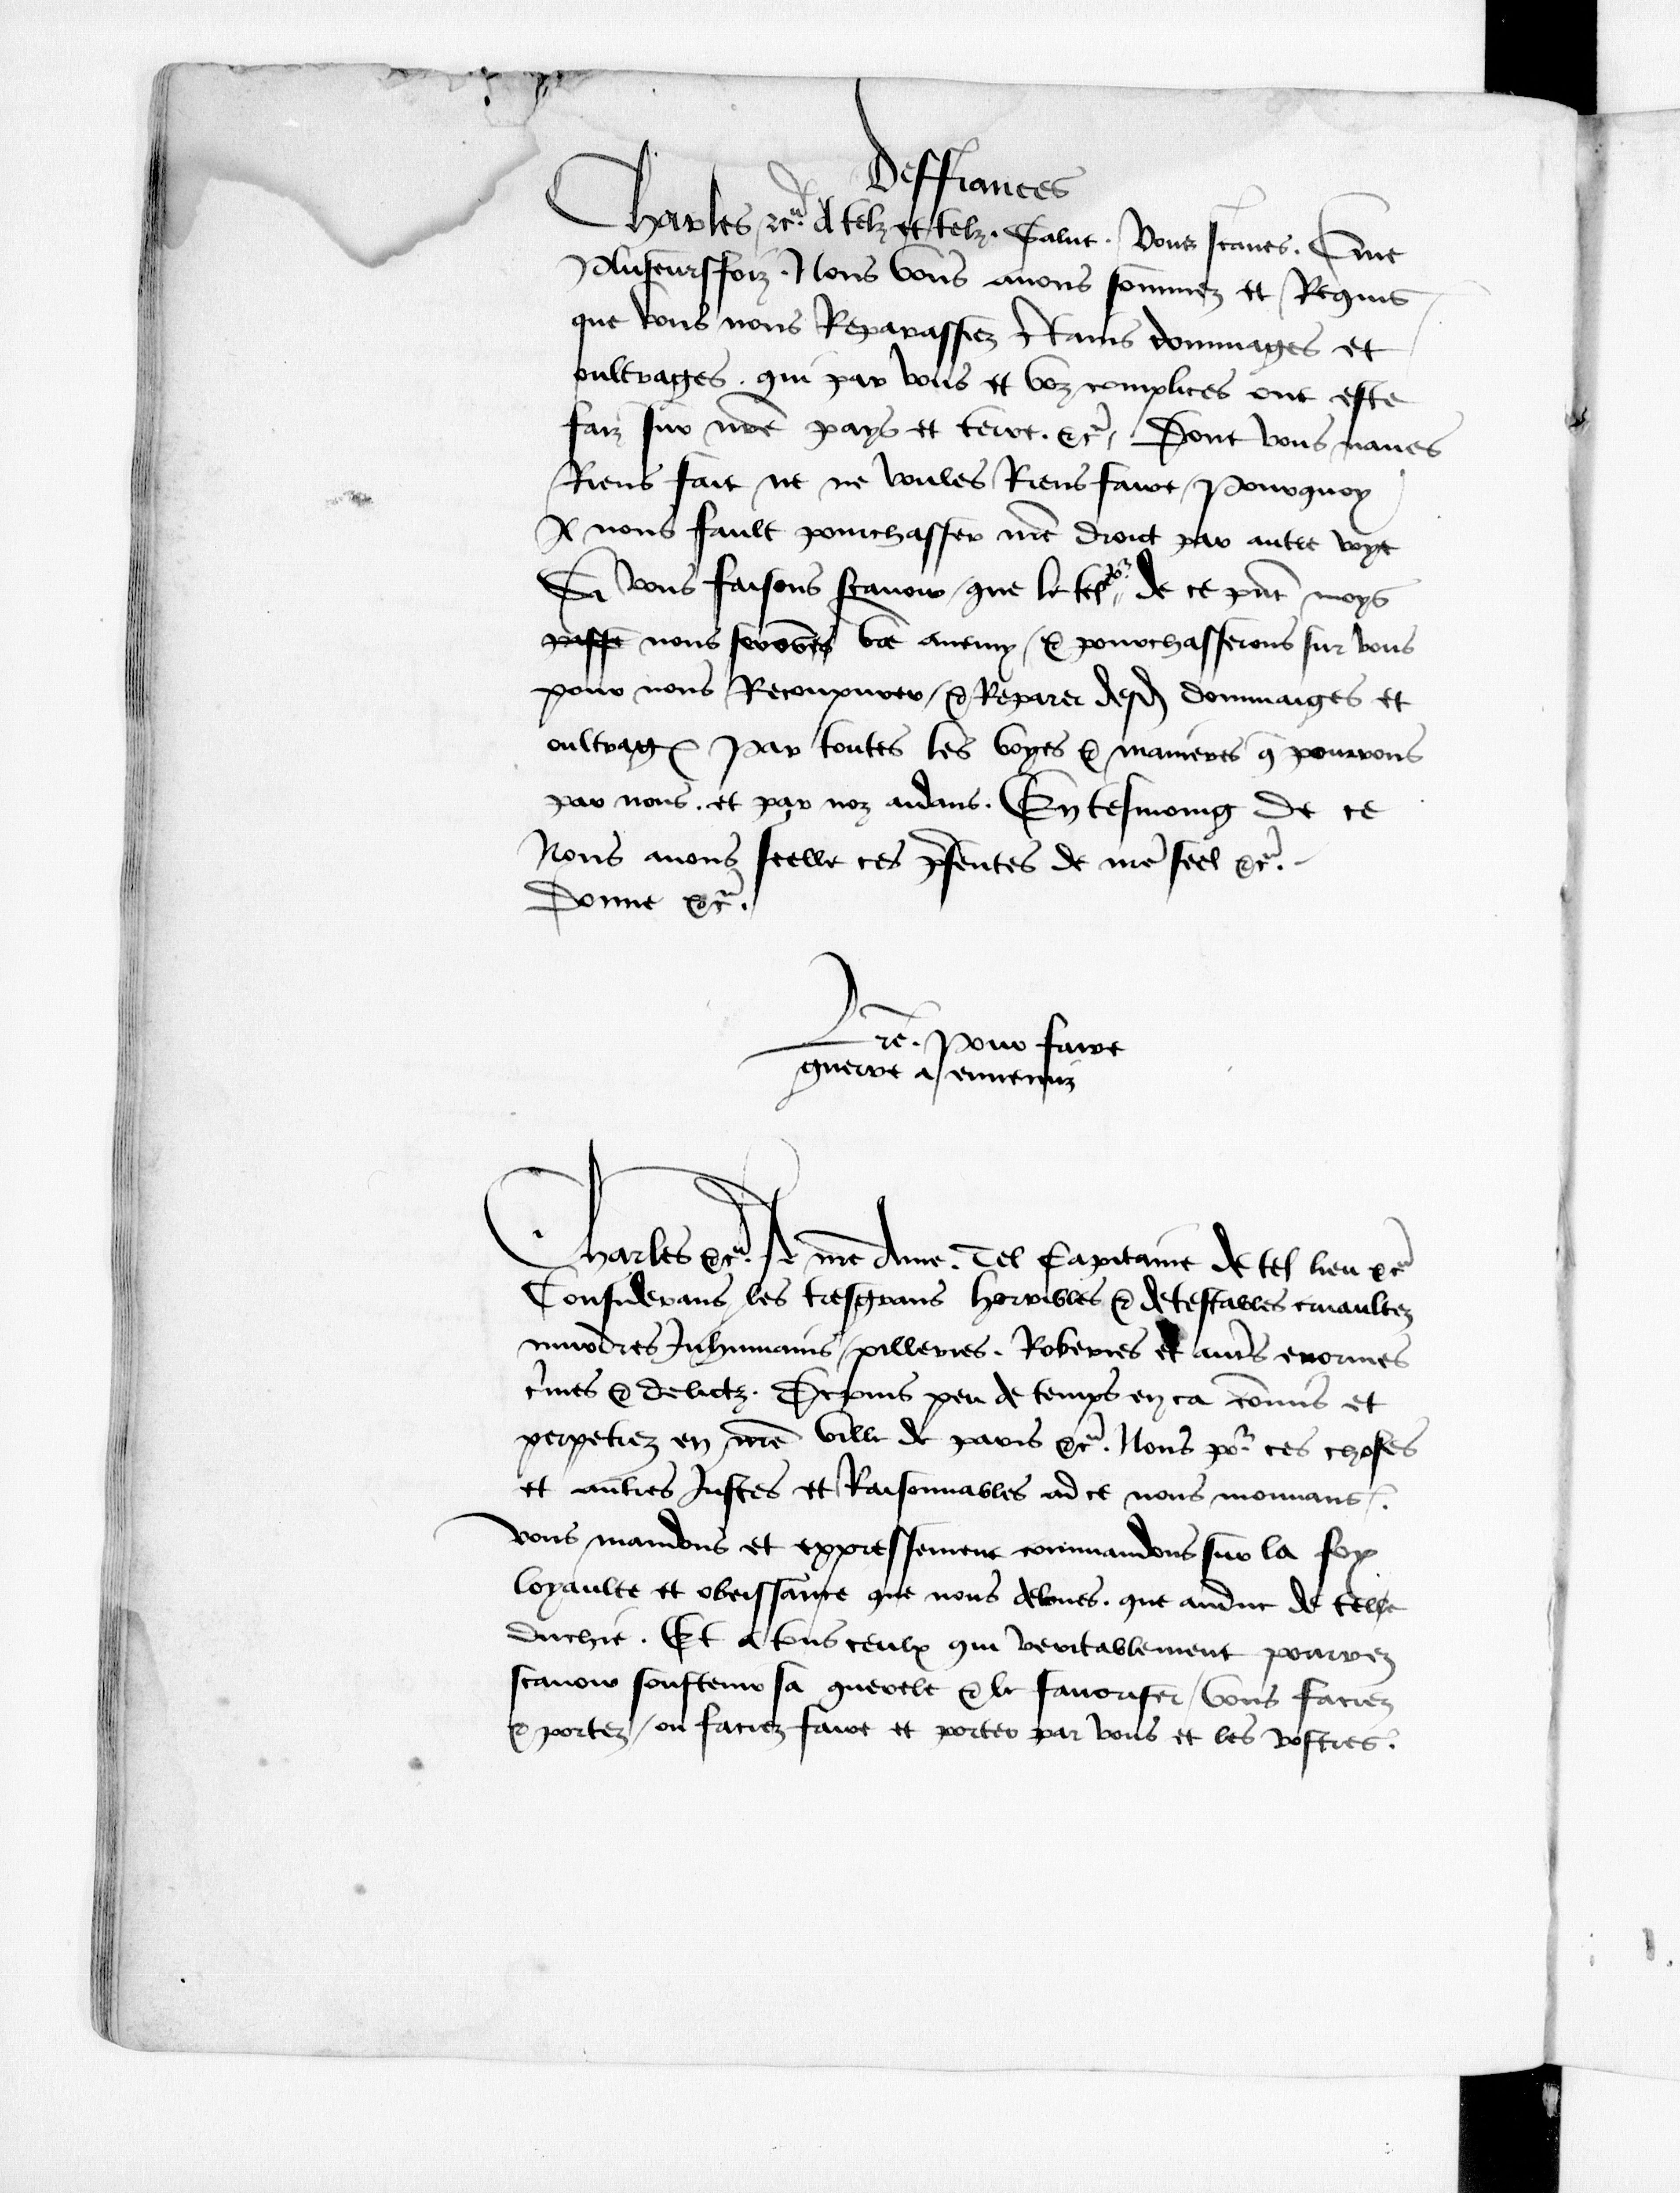 Deffiances
Charles etc. A telz et telz. Salut. Vous scaues. Que
Pluseurs foiz. Nous vous auons sommez et Requis
que vous nous Reparassiez certains dommages et
oultrages. qui par vous et voz complices ont este
faiz sur nre pays et terre. &c. Dont vous naues
Riens fait ne ne voules Riens faire / Pourquoy
Il nous fault pourchasser nre droit par autre voye
Si vous faisons scauoir / que le tel jo.r de ce pnt moys
passe nous serons vre anemy / & pourchasserons sur vous
pour nous Recouurer / & Reparer desd dommaiges et
oultrages Par toutes les voyes & manieres q pourrons
par nous. et par noz aidans. En tesmoing de ce
Nous auons seelle ces psentes de nre seel &c.
Donne &c.
Lre. Pour faire
guerre a ennemiz
Charles &c. A nre Ame. Tel Capitaine de tel lieu &c
Considerans les tresgrans horribles & detestables cruaultez
murdres Inhumains / pilleries. Roberies et autrs enormes
crimes & delictz. Depuis peu de temps en ca commis et
perpetrez en nre ville de paris &c. Nous po.r ces choses
et aultres Justes et Raisonnables ad ce nous mouuans /.
vous mandons et expressement commandons sur la foy
loyaulte et obeissance que nous deuues. que audut de telle
duchie. Et a tous ceulx qui veritablement pourrez
scauoir soustenir sa querele & le fauoriser / vous faciez
& portez / ou faciez faire et porter par vous et les vostres.